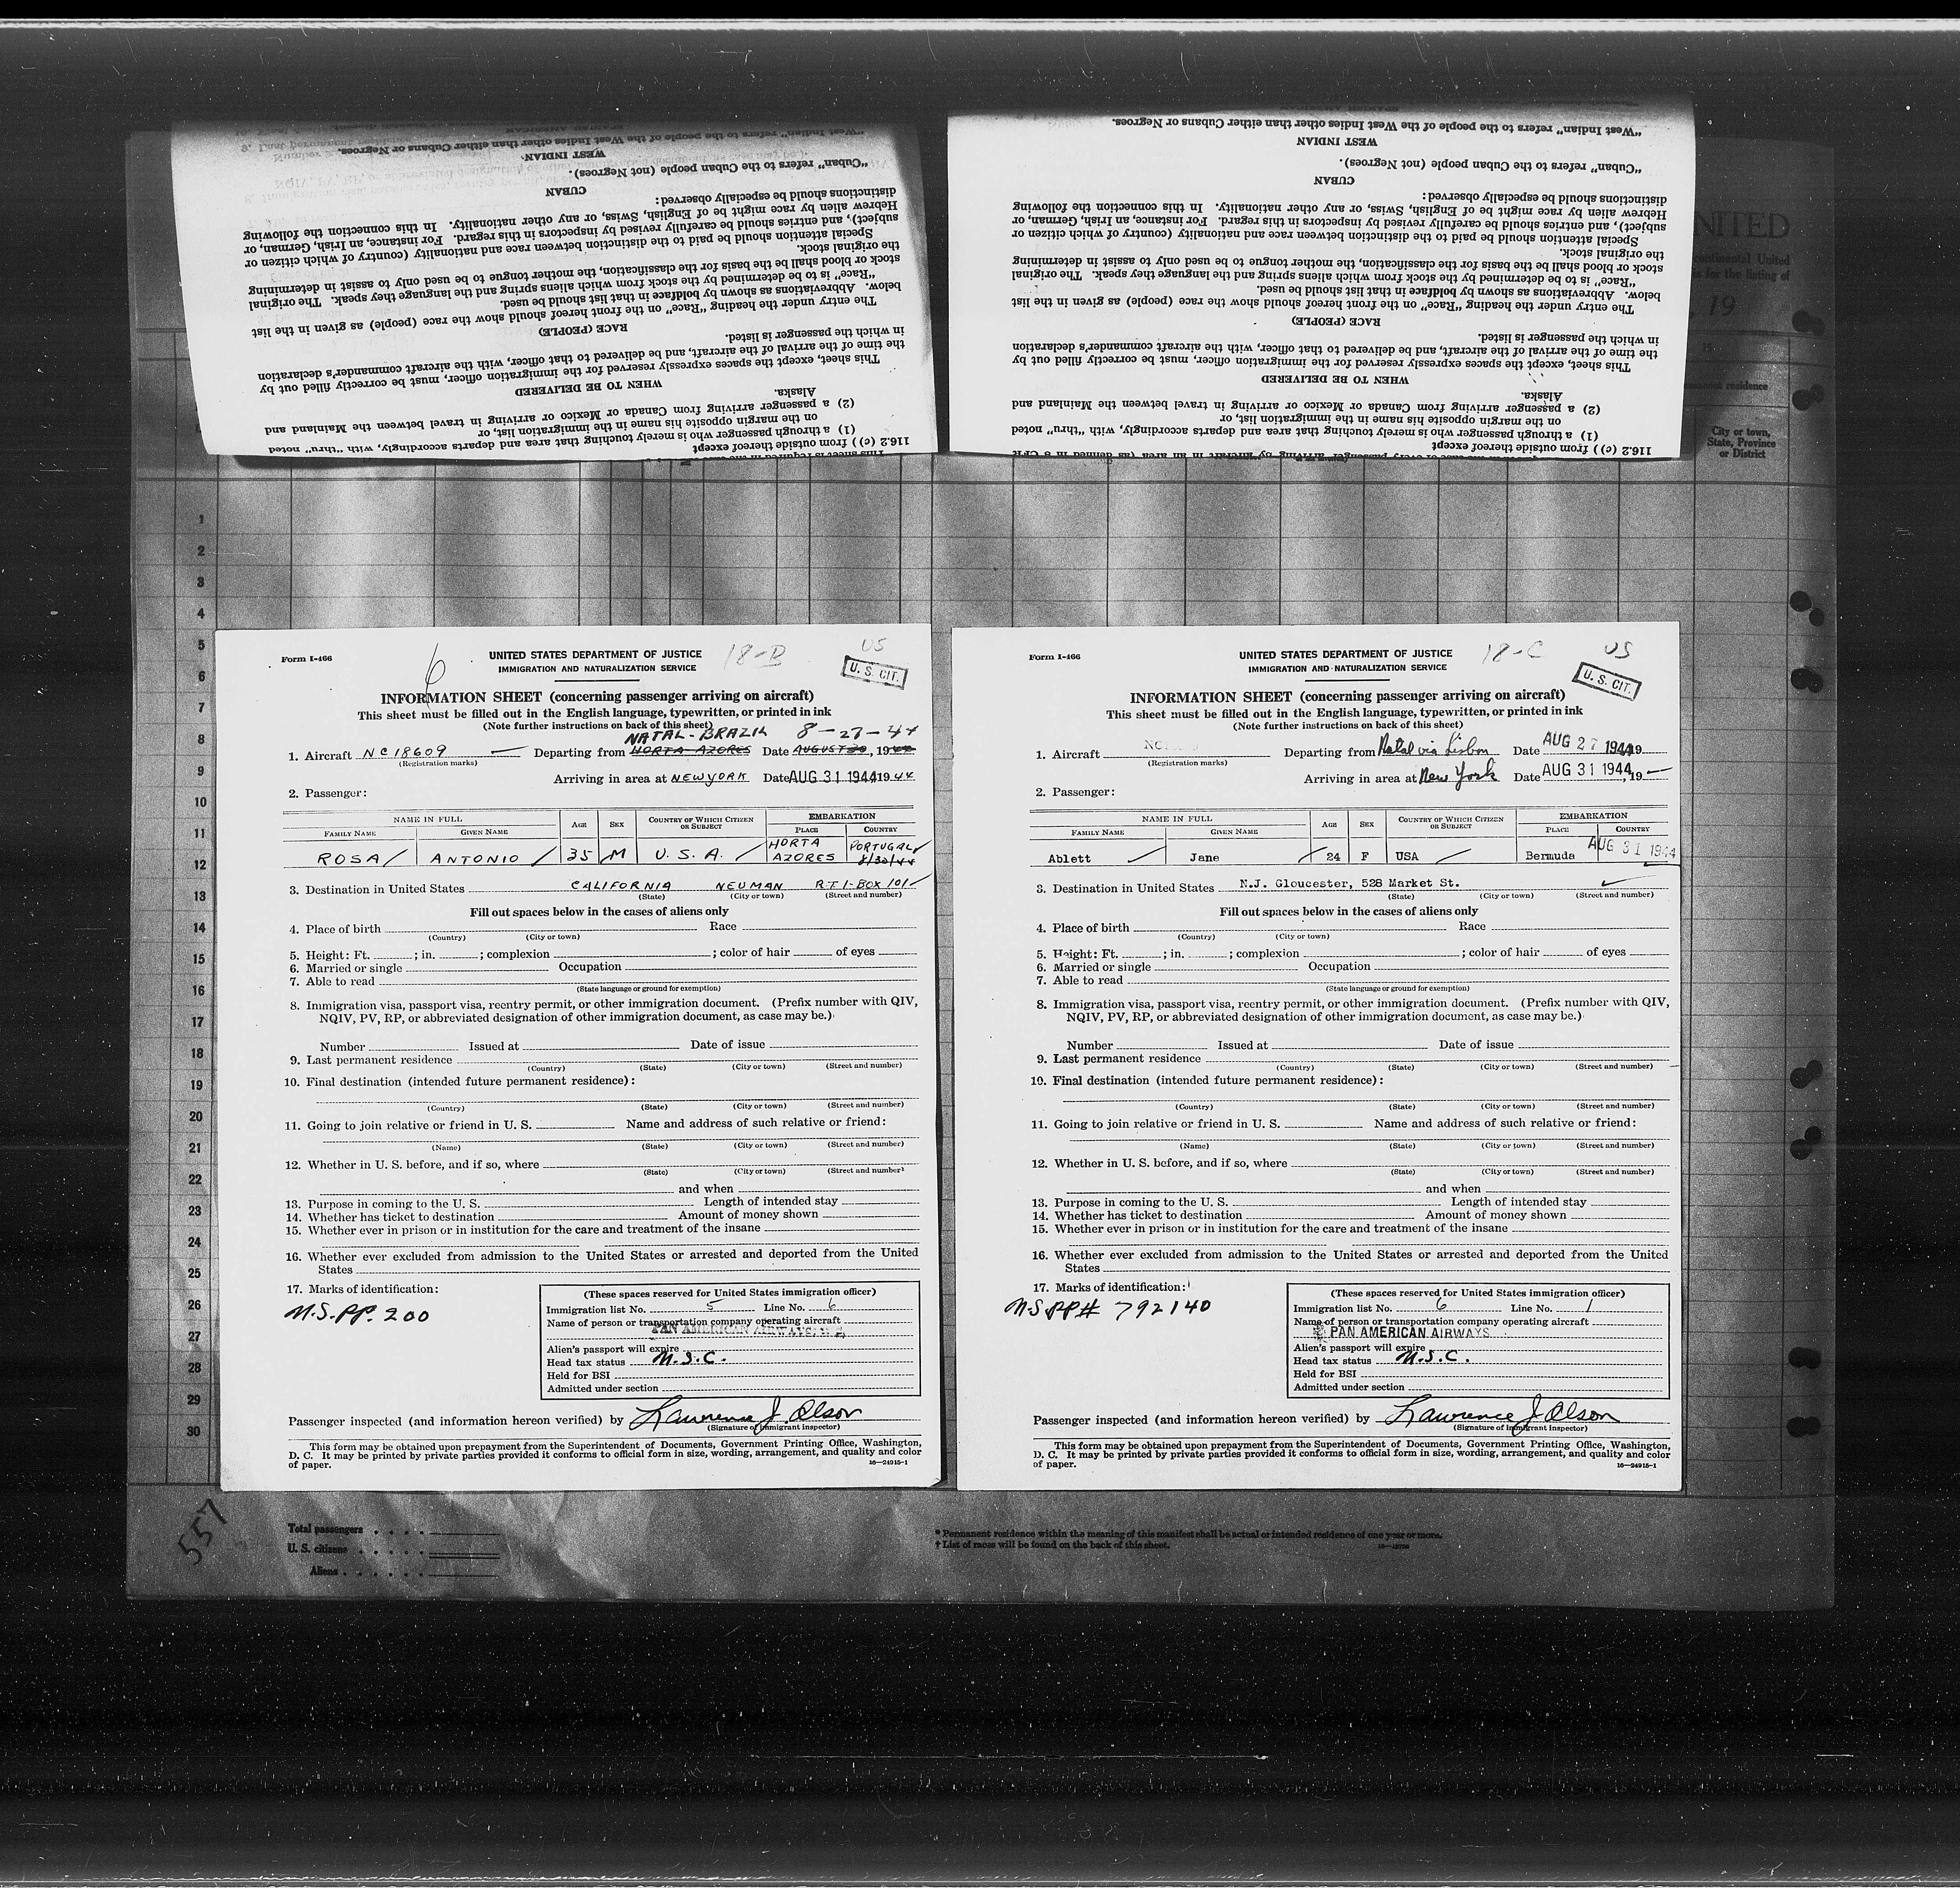 "West Indian" refers to the people of the West Indies other than either Cubans or Negroes.
WEST INDIAN
"Cuban" refers to the Cuban people (not Negroes).
CUBAN
distinctions should be especially observed:
Hebrew alien by race might be of English, Swiss, or any other nationality. In this connection the following
subject), and entries should be carefully revised by inspectors in this regard. For instance, an Irish, German, or
Special attention should be paid to the distinction between race and nationality (country of which citizen or
the original stock.
stock or blood shall be the basis for the classification, the mother tongue to be used only to assist in determining
"Race" is to be determined by the stock from which aliens spring and the language they speak. The original
below. Abbreviations as shown by boldface in that list should be used.
The entry under the heading "Race" on the front hereof should show the race (people) as given in the list
RACE (PEOPLE)
in which the passenger is listed.
the time of the arrival of the aircraft, and be delivered to that officer, with the aircraft commander's declaration
This sheet, except the spaces expressly reserved for the immigration officer, must be correctly filled out by
WHEN TO BE DELIVERED
Alaska.
(2) a passenger arriving from Canada or Mexico or arriving in travel between the Mainland and
on the margin opposite his name in the immigration list, or
(1) a through passenger who is merely touching that area and departs accordingly, with "thru" noted
116.2 (c)) from outside thereof except
"West Indian" refers to the people of the West Indies other than either Cubans or Negroes.
WEST INDIAN
"Cuban" refers to the Cuban people (not Negroes).
CUBAN
distinctions should be especially observed:
Hebrew alien by race might be of English, Swiss, or any other nationality. In this connection the following
subject), and entries should be carefully revised by inspectors in this regard. For instance, an Irish, German, or
Special attention should be paid to the distinction between race and nationality (country of which citizen or
the original stock.
stock or blood shall be the basis for the classification, the mother tongue to be used only to assist in determining
"Race" is to be determined by the stock from which aliens spring and the language they speak. The original
below. Abbreviations as shown by boldface in that list should be used.
The entry under the heading "Race" on the front hereof should show the race (people) as given in the list
RACE (PEOPLE)
in which the passenger is listed.
the time of the arrival of the aircraft, and be delivered to that officer, with the aircraft commander's declaration
This sheet, except the spaces expressly reserved for the immigration officer, must be correctly filled out by
WHEN TO BE DELIVERED
Alaska.
(2) a passenger arriving from Canada or Mexico or arriving in travel between the Mainland and
on the margin opposite his name in the immigration list, or
(1) a through passenger who is merely touching that area and departs accordingly, with "thru" noted
116.2 (c)) from outside thereof except
NITED
continental United
is for the listing of
, 19
15
residence
City or town,
State, Province
or District
1
2
3
4
5
6
7
8
9
10
11
12
13
14
15
16
17
18
19
20
21
22
23
24
25
26
27
28
29
30
6
Form I-466
UNITED STATES DEPARTMENT OF JUSTICE
18-B
US
IMMIGRATION AND NATURALIZATION SERVICE
U. S. CIT.
INFORMATION SHEET (concerning passenger arriving on aircraft)
This sheet must be filled out in the English language, typewritten, or printed in ink
(Note further instructions on back of this sheet)
NATAL-BRAZIL 8-27-44
1. Aircraft NC18609 Departing from HORTA AZORES Date AUGUST 30, 1944
(Registration marks)
Arriving in area at NEW YORK Date AUG 31 1944, 1944
2. Passenger:
NAME IN FULL
AGE
SEX
COUNTRY OF WHICH CITIZEN
OR SUBJECT
EMBARKATION
FAMILY NAME
GIVEN NAME
PLACE
COUNTRY
ROSA ANTONIO 35 M U.S.A. HORTA AZORES PORTUGAL 8/30/44
3. Destination in United States CALIFORNIA NEUMAN RT 1-BOX 101
(State) (City or town) (Street and number)
Fill out spaces below in the cases of aliens only
4. Place of birth Race
(Country) (City or town)
5. Height: Ft. ; in. ; complexion ; color of hair of eyes
6. Married or single Occupation
7. Able to read
(State language or ground for exemption)
8. Immigration visa, passport visa, reentry permit, or other immigration document. (Prefix number with QIV,
NQIV, PV, RP, or abbreviated designation of other immigration document, as case may be.)
Number Issued at Date of issue
9. Last permanent residence
(Country) (State) (City or town) (Street and number)
10. Final destination (intended future permanent residence):
(Country) (State) (City or town) (Street and number)
11. Going to join relative or friend in U. S. Name and address of such relative or friend:
(Name) (State) (City or town) (Street and number)
12. Whether in U. S. before, and if so, where
(State) (City or town) (Street and number)
and when
13. Purpose in coming to the U. S. Length of intended stay
14. Whether has ticket to destination Amount of money shown
15. Whether ever in prison or in institution for the care and treatment of the insane
16. Whether ever excluded from admission to the United States or arrested and deported from the United
States
17. Marks of identification:
N.S.PP. 200
(These spaces reserved for United States immigration officer)
Immigration list No. 5 Line No. 6
Name of person or transportation company operating aircraft
PAN AMERICAN AIRWAYS
Alien's passport will expire
Head tax status N.S.C.
Held for BSI
Admitted under section
Passenger inspected (and information hereon verified) by Lawrence J. Olson
(Signature of immigrant inspector)
This form may be obtained upon prepayment from the Superintendent of Documents, Government Printing Office, Washington,
D. C. It may be printed by private parties provided it conforms to official form in size, wording, arrangement, and quality and color
of paper.
16—24915-1
Form I-466
UNITED STATES DEPARTMENT OF JUSTICE
18-C
US
IMMIGRATION AND NATURALIZATION SERVICE
U. S. CIT.
INFORMATION SHEET (concerning passenger arriving on aircraft)
This sheet must be filled out in the English language, typewritten, or printed in ink
(Note further instructions on back of this sheet)
1. Aircraft Departing from Natal via Lisbon Date AUG 27 1944, 19
(Registration marks)
Arriving in area at New York Date AUG 31 1944, 19
2. Passenger:
NAME IN FULL
AGE
SEX
COUNTRY OF WHICH CITIZEN
OR SUBJECT
EMBARKATION
FAMILY NAME
GIVEN NAME
PLACE
COUNTRY
Ablett Jane 24 F USA Bermuda AUG 31 1944
3. Destination in United States N.J. Gloucester, 528 Market St.
(State) (City or town) (Street and number)
Fill out spaces below in the cases of aliens only
4. Place of birth Race
(Country) (City or town)
5. Height: Ft. ; in. ; complexion ; color of hair of eyes
6. Married or single Occupation
7. Able to read
(State language or ground for exemption)
8. Immigration visa, passport visa, reentry permit, or other immigration document. (Prefix number with QIV,
NQIV, PV, RP, or abbreviated designation of other immigration document, as case may be.)
Number Issued at Date of issue
9. Last permanent residence
(Country) (State) (City or town) (Street and number)
10. Final destination (intended future permanent residence):
(Country) (State) (City or town) (Street and number)
11. Going to join relative or friend in U. S. Name and address of such relative or friend:
(Name) (State) (City or town) (Street and number)
12. Whether in U. S. before, and if so, where
(State) (City or town) (Street and number)
and when
13. Purpose in coming to the U. S. Length of intended stay
14. Whether has ticket to destination Amount of money shown
15. Whether ever in prison or in institution for the care and treatment of the insane
16. Whether ever excluded from admission to the United States or arrested and deported from the United
States
17. Marks of identification:
N.S.PP# 792140
(These spaces reserved for United States immigration officer)
Immigration list No. 6 Line No. 1
Name of person or transportation company operating aircraft
PAN AMERICAN AIRWAYS
Alien's passport will expire
Head tax status N.S.C.
Held for BSI
Admitted under section
Passenger inspected (and information hereon verified) by Lawrence J Olson
(Signature of immigrant inspector)
This form may be obtained upon prepayment from the Superintendent of Documents, Government Printing Office, Washington,
D. C. It may be printed by private parties provided it conforms to official form in size, wording, arrangement, and quality and color
of paper.
16—24915-1
557
Total passengers
U. S. citizens
Aliens
* Permanent residence within the meaning of this manifest shall be actual or intended residence of one year or more.
† List of races will be found on the back of this sheet.